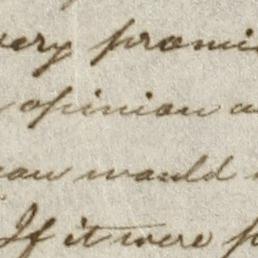 very promi
opinion a
would
If it were